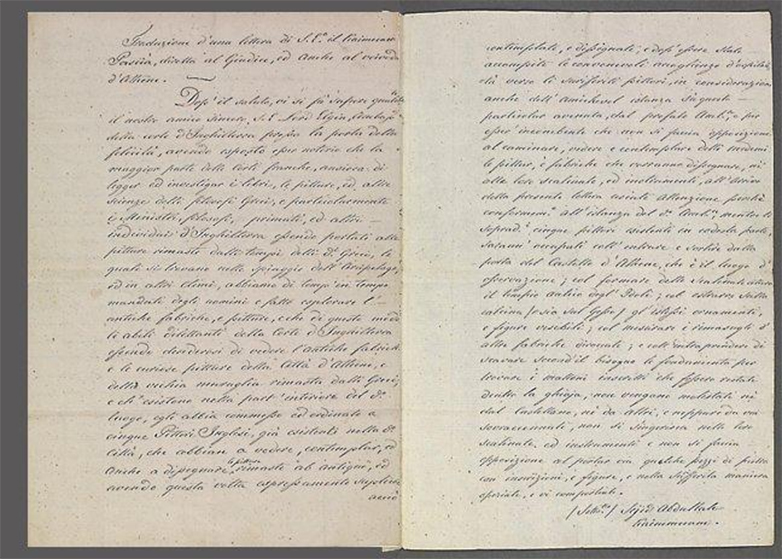 Traduzione d'una lettera di S. E. il Caimmecam
Pascià, diretta al Giudice, ed anche al Vaivoda
d'Athene.
Dopo il saluto, vi si fà sapere qualm.te
il nostro amico sincero, S. E. Lord Elgin, Ambas.
della corte d'Inghilterra presso la porta della
felicità, avendo esposto esser notorio che la
maggior parte delle Corti franche, ansiosa di
legger ed investigar i libri, le pitture, ed altre
scienze delli filosofi Greci, e particolarmente
i Ministri, filosofi, primati, ed altri
individui d'Inghilterra essendo portati alle
pitture rimaste dalli tempi delli d. Greci, le
quali si trovano nelle spiaggie dell'Arcipelago,
ed in altri climi, abbiano di tempi in tempo
mandati degli uomini e fatto esplorare l'
antiche fabriche, e pitture, e che di questo modo
li abili dilettanti della Corte d'Inghilterra
essendo desiderosi di vedere l'antiche fabriche
e le curiose pitture della Città d'Athene, e
della vecchia muraglia rimasta dalli Greci,
e ch'esistono nella part'interiore del d.
luogo, egli abbia commesso ed ordinato a
cinque Pittori Inglesi, già esistenti nella d.
città, che abbian a vedere, contemplar, ed
anche a disegnare le pitture rimaste ab antiquo, ed
avendo questa volta espressamente supplicato
acciò
contemplati, e disegnati; e dopo essere state
accompite le convenevoli accoglienze d'ospitali
tà verso le suriferiti pittori, in considerazione
anche dell'amichevol istanza in questo
particolar avenuta dal prefato Amb. e per
esser incombente che non si faccia opposizione
al caminare, vedere e contemplare delli medemi
le pitture, e fabriche che vorranno disegnare, ni
alle loro scalinate, ed instromenti, all'arrivo
della presente lettera usiate attenzione perchè
conformem. all'istanza del d. Amb. mentre le
soprad. cinque pittori esistenti in codesta parte,
saranno occupati coll'entrare e sortire dalle
porte del Castello d'Athene, che è il luogo d'
osservazione; col formare delle scalinate attorno
il tempio antico degl'Idoli; col estrarre sulla
calcina (o sia sul gesso) gl'istessi ornamenti,
e figure visibili; col misurare i rimasugli d'
altre fabriche diroccate; e coll'intraprendere di
scavare secondo il bisogno le fondamenta per
trovare i mattoni inscritti che fossero restati
dentro la ghiaja, non vengano molestati ni
dal Castellano, ni da altri, e neppure da voi
sovraccennati, non si singerisca nelle loro
scalinate ed instromenti e non si faccia
opposizione al portar via qualche pezzi di pietra
con inscrizioni, e figure, e nella suriferita maniera
operiate, e vi comportiate.
Sejid Abdullah
Caimmecam.